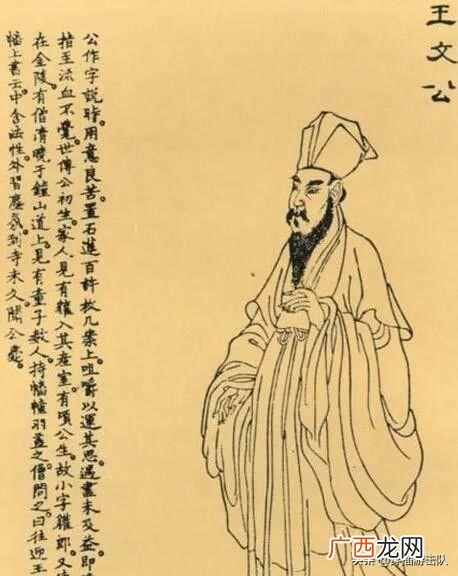 王文公
公作字說時。用意良苦。置石蓮百許枚几案上。咀嚼以運其思。遇盡未及益。即
指至流血不覺。世傳公初生。家人見有獾入其產室。有頃公生。故小字獾郎。又
在金陵。有僧清曉于鐘山道上。見有童子數人。持幡幢羽蓋之。僧問之。曰往迎王
幡上書云。中含法性。外習塵氛。到寺未久。聞公薨。
头条
游击队
广西龙网